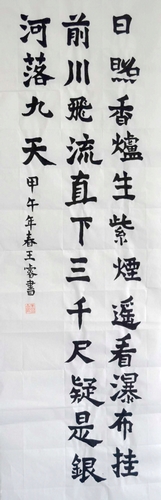 日照香爐生紫煙遥看瀑布挂
前川飛流直下三千尺疑是銀
河落九天
甲午年春王客書